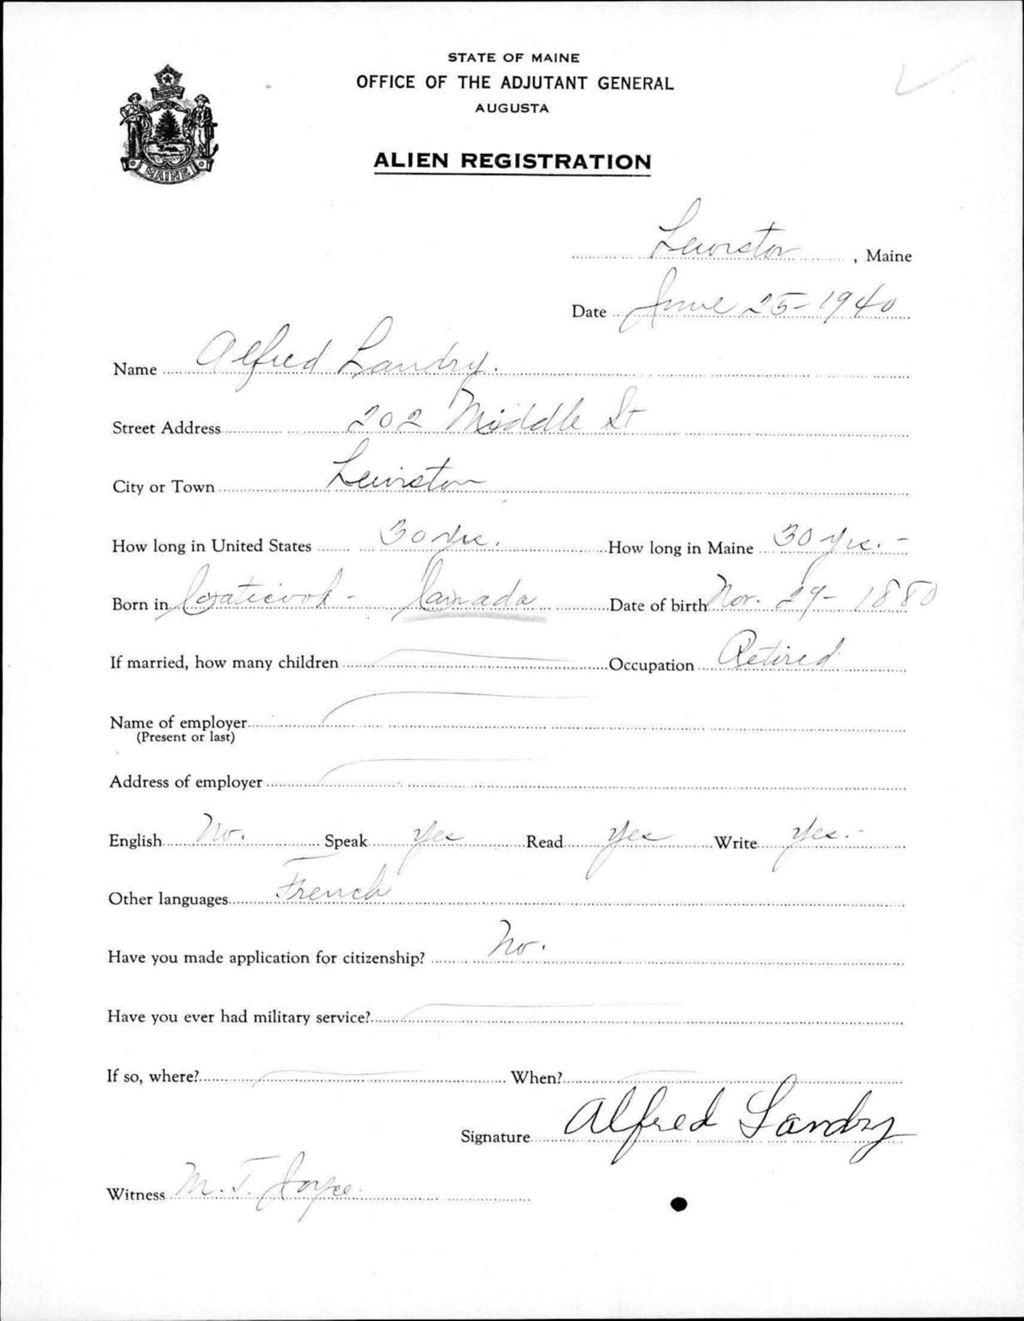 STATE OF MAINE
OFFICE OF THE ADJUTANT GENERAL
AUGUSTA
ALIEN REGISTRATION
MAINE
Lewiston, Maine
Date June 25-1940
Name Alfred Landry.
Street Address 202 Middle St
City or Town Lewiston
How long in United States 30 yrs. How long in Maine 30 yrs. -
Born in Coaticook - Canada Date of birth Nov. 29 - 1880
If married, how many children Occupation Retired
Name of employer
(Present or last)
Address of employer
English No. Speak Yes Read Yes Write Yes. -
Other languages French
Have you made application for citizenship? No.
Have you ever had military service?
If so, where? When?
Signature Alfred Landry
Witness M. T. Joyce